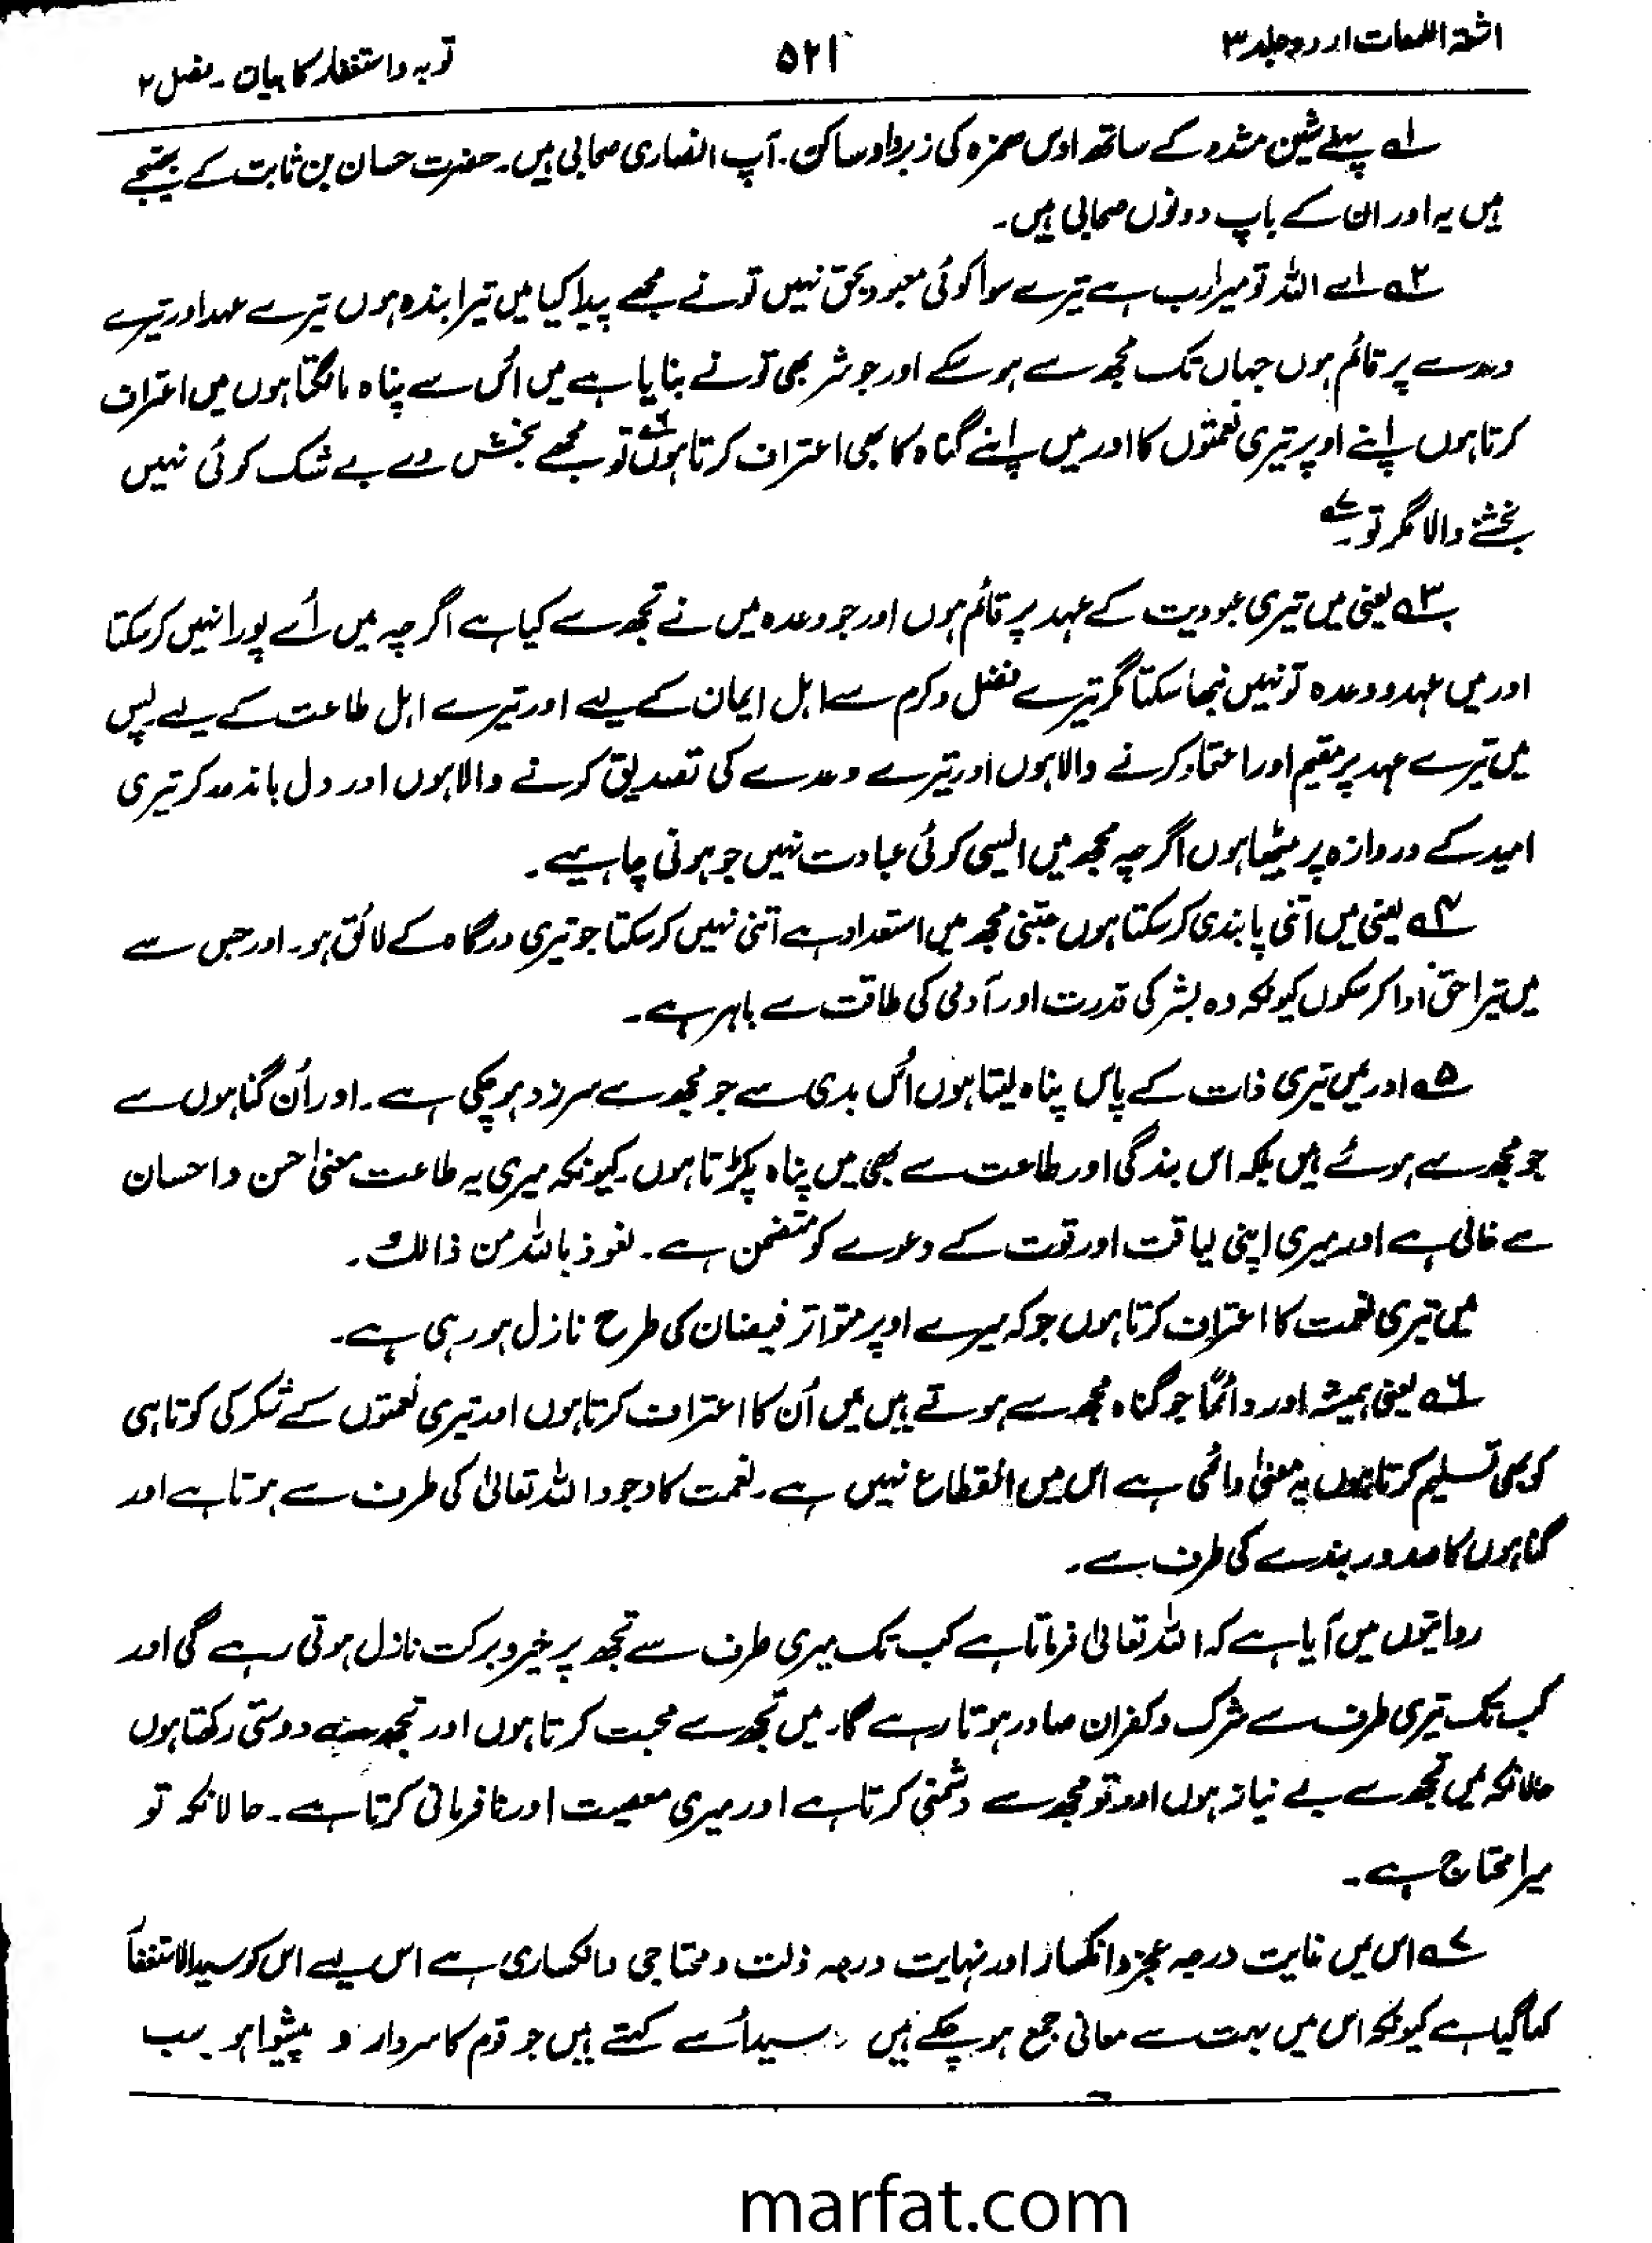 اشعۃ اللمعات اردو جلد ۳
۵۲۱
توبہ و استغفار کا بیان۔ فصل ۲
۱ پہلے شین مشدد کے ساتھ اوس ھمزہ کی زبر واو ساکن۔ آپ انصاری صحابی ہیں۔ حضرت حسان بن ثابت کے بھتیجے
ہیں یہ اور ان کے باپ دونوں صحابی ہیں۔
۲ اے اللہ تو میرا رب ہے تیرے سوا کوئی معبود بحق نہیں تو نے مجھے پیدا کیا میں تیرا بندہ ہوں تیرے عہد اور تیرے
وعدے پر قائم ہوں جہاں تک مجھ سے ہو سکے اور جو شر بھی تو نے بنایا ہے میں اُس سے پناہ مانگتا ہوں میں اعتراف
کرتا ہوں اپنے اوپر تیری نعمتوں کا اور میں اپنے گناہ کا بھی اعتراف کرتا ہوں ۶ تو مجھے بخش دے بے شک کوئی نہیں
بخشنے والا مگر تو۔ ۷
۳ یعنی میں تیری عبودیت کے عہد پر قائم ہوں اور جو وعدہ میں نے تجھ سے کیا ہے اگرچہ میں اُسے پورا نہیں کر سکتا
اور میں عہد و وعدہ تو نہیں نبھا سکتا مگر تیرے فضل و کرم سے اہل ایمان کے لیے اور تیرے اہل طاعت کے لیے پس
میں تیرے عہد پر مقیم اور اعتماد کرنے والا ہوں اور تیرے وعدے کی تصدیق کرنے والا ہوں اور دل باندھ کر تیری
امید کے دروازہ پر بیٹھا ہوں اگرچہ مجھ میں ایسی کوئی عبادت نہیں جو ہونی چاہیے۔
۴ یعنی میں اتنی پابندی کر سکتا ہوں جتنی مجھ میں استعداد ہے اتنی نہیں کر سکتا جو تیری درگاہ کے لائق ہو۔ اور جس سے
میں تیرا حق ادا کر سکوں کیونکہ وہ بشر کی قدرت اور آدمی کی طاقت سے باہر ہے۔
۵ اور میں تیری ذات کے پاس پناہ لیتا ہوں اُس بدی سے جو مجھ سے سرزد ہو چکی ہے۔ اور اُن گناہوں سے
جو مجھ سے ہوئے ہیں بلکہ اس بندگی اور طاعت سے بھی میں پناہ پکڑتا ہوں۔ کیونکہ میری یہ طاعت معنیٰ حسن و احسان
سے خالی ہے اور میری اپنی لیاقت اور قوت کے دعوے کو متضمن ہے۔ نعوذ باللہ من ذالک۔
میں تیری نعمت کا اعتراف کرتا ہوں جو کہ میرے اوپر متواتر فیضان کی طرح نازل ہو رہی ہے۔
۶ یعنی ہمیشہ اور دائمًا جو گناہ مجھ سے ہوتے ہیں میں اُن کا اعتراف کرتا ہوں اور تیری نعمتوں کے شکر کی کوتاہی
کو بھی تسلیم کرتا ہوں یہ معنیٰ دائمی ہے اس میں انقطاع نہیں ہے۔ نعمت کا وجود اللہ تعالیٰ کی طرف سے ہوتا ہے اور
گناہوں کا صدور بندے کی طرف سے۔
روایتوں میں آیا ہے کہ اللہ تعالیٰ فرماتا ہے کب تک میری طرف سے تجھ پر خیر و برکت نازل ہوتی رہے گی اور
کب تک تیری طرف سے شرک و کفران صادر ہوتا رہے گا۔ میں تجھ سے محبت کرتا ہوں اور تجھ سے دوستی رکھتا ہوں
حالانکہ میں تجھ سے بے نیاز ہوں اور تو مجھ سے دشمنی کرتا ہے اور میری معصیت اور نافرمانی کرتا ہے۔ حالانکہ تو
میرا محتاج ہے۔
۷ اس میں غایت درجہ عجز و انکسار اور نہایت درجہ ذلت و محتاجی و انکساری ہے اس لیے اس کو سید الاستغفار
کہا گیا ہے کیونکہ اس میں بہت سے معانی جمع ہو چکے ہیں۔ سید اُسے کہتے ہیں جو قوم کا سردار و پیشوا ہو۔ سب
marfat.com